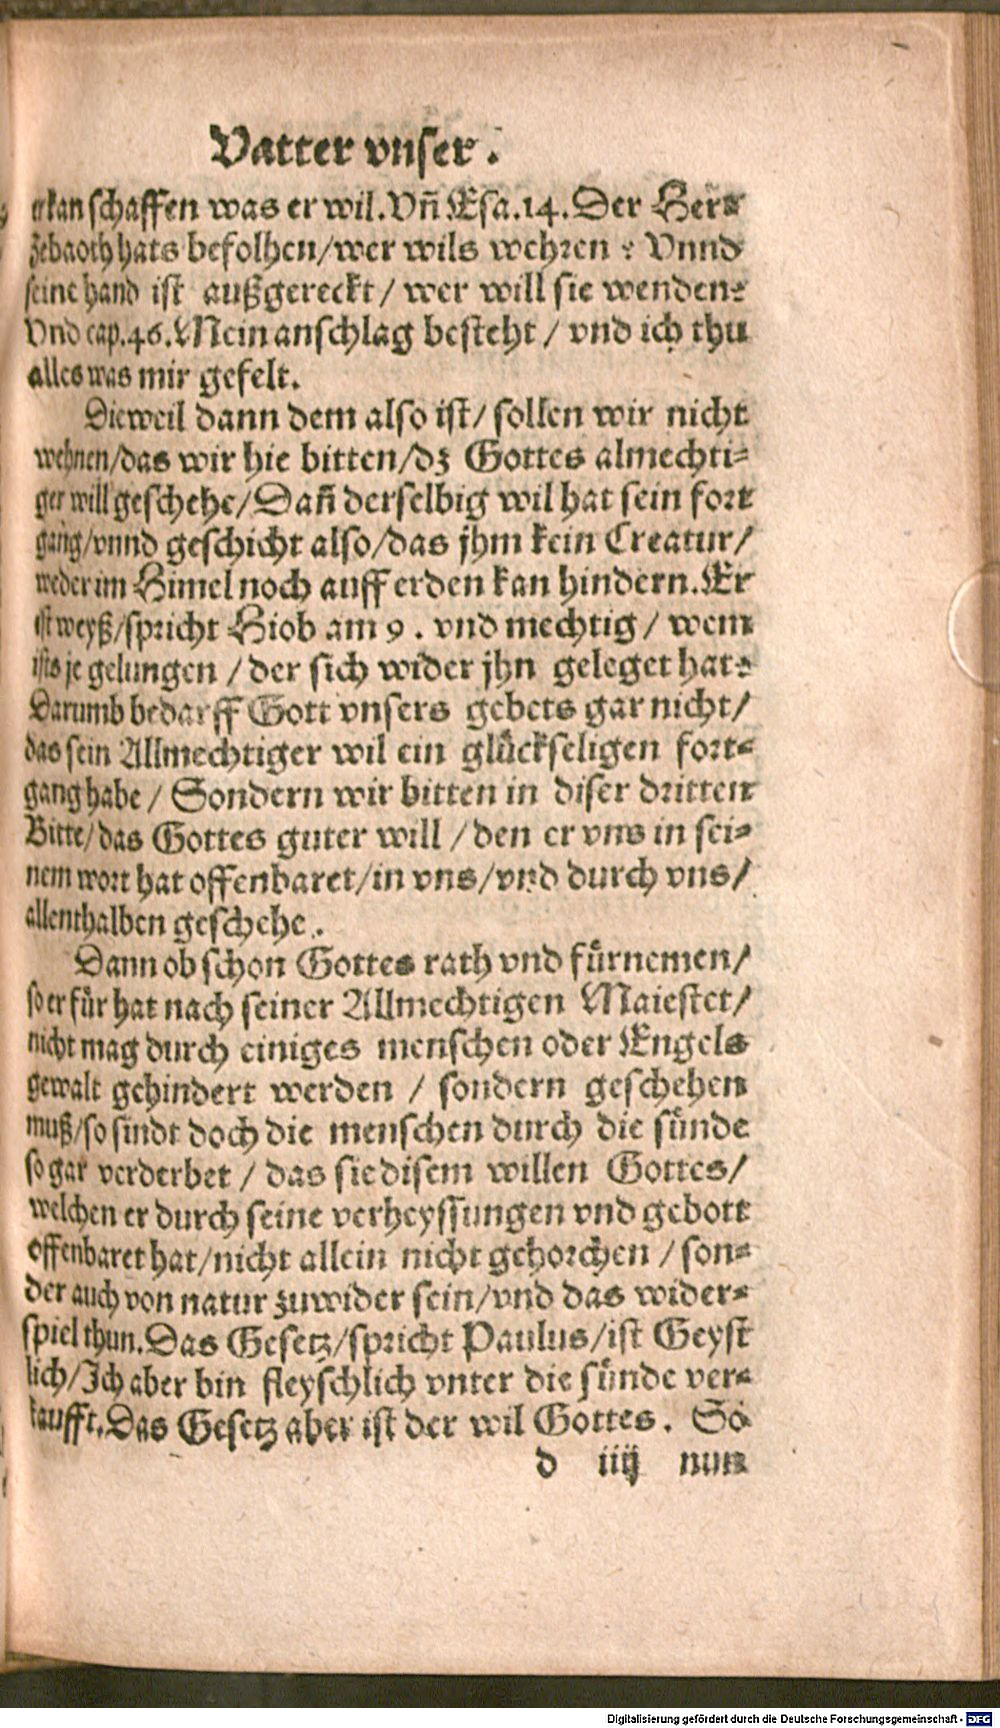 Vatter vnser.
er kan schaffen was er wil. Vñ Esa. 14. Der Herr
Zebaoth hats befolhen/wer wils wehren? Vnnd
seine hand ist außgereckt/ wer will sie wenden?
Vnd cap. 46. Mein anschlag besteht/ vnd ich thu
alles was mir gefelt.
Dieweil dann dem also ist/ sollen wir nicht
wehnen/das wir hie bitten/dz Gottes almechti-
ger will geschehe/Dañ derselbig wil hat sein fort
gang/vnnd geschicht also/das jhm kein Creatur/
weder im Himel noch auff erden kan hindern. Er
ist weyß/spricht Hiob am 9. vnd mechtig/ wem
ists je gelungen/ der sich wider jhn geleget hat?
Darumb bedarff Gott vnsers gebets gar nicht/
das sein Allmechtiger wil ein glückseligen fort-
gang habe/ Sondern wir bitten in diser dritten
Bitte/das Gottes guter will/den er vns in sei-
nem wort hat offenbaret/in vns/vnd durch vns/
allenthalben geschehe.
Dann ob schon Gottes rath vnd fürnemen/
so er für hat nach seiner Allmechtigen Maiestet/
nicht mag durch einiges menschen oder Engels
gewalt gehindert werden/ sondern geschehen
muß/so sindt doch die menschen durch die sünde
so gar verderbet/ das sie disem willen Gottes/
welchen er durch seine verheyssungen vnd gebott
offenbaret hat/nicht allein nicht gehorchen/son-
der auch von natur zuwider sein/vnd das wider-
spiel thun. Das Gesetz/spricht Paulus/ist Geyst
lich/Ich aber bin fleyschlich vnter die sünde ver-
kaufft. Das Gesetz aber ist der wil Gottes. So
d iiij nun
Digitalisierung gefördert durch die Deutsche Forschungsgemeinschaft - DFG